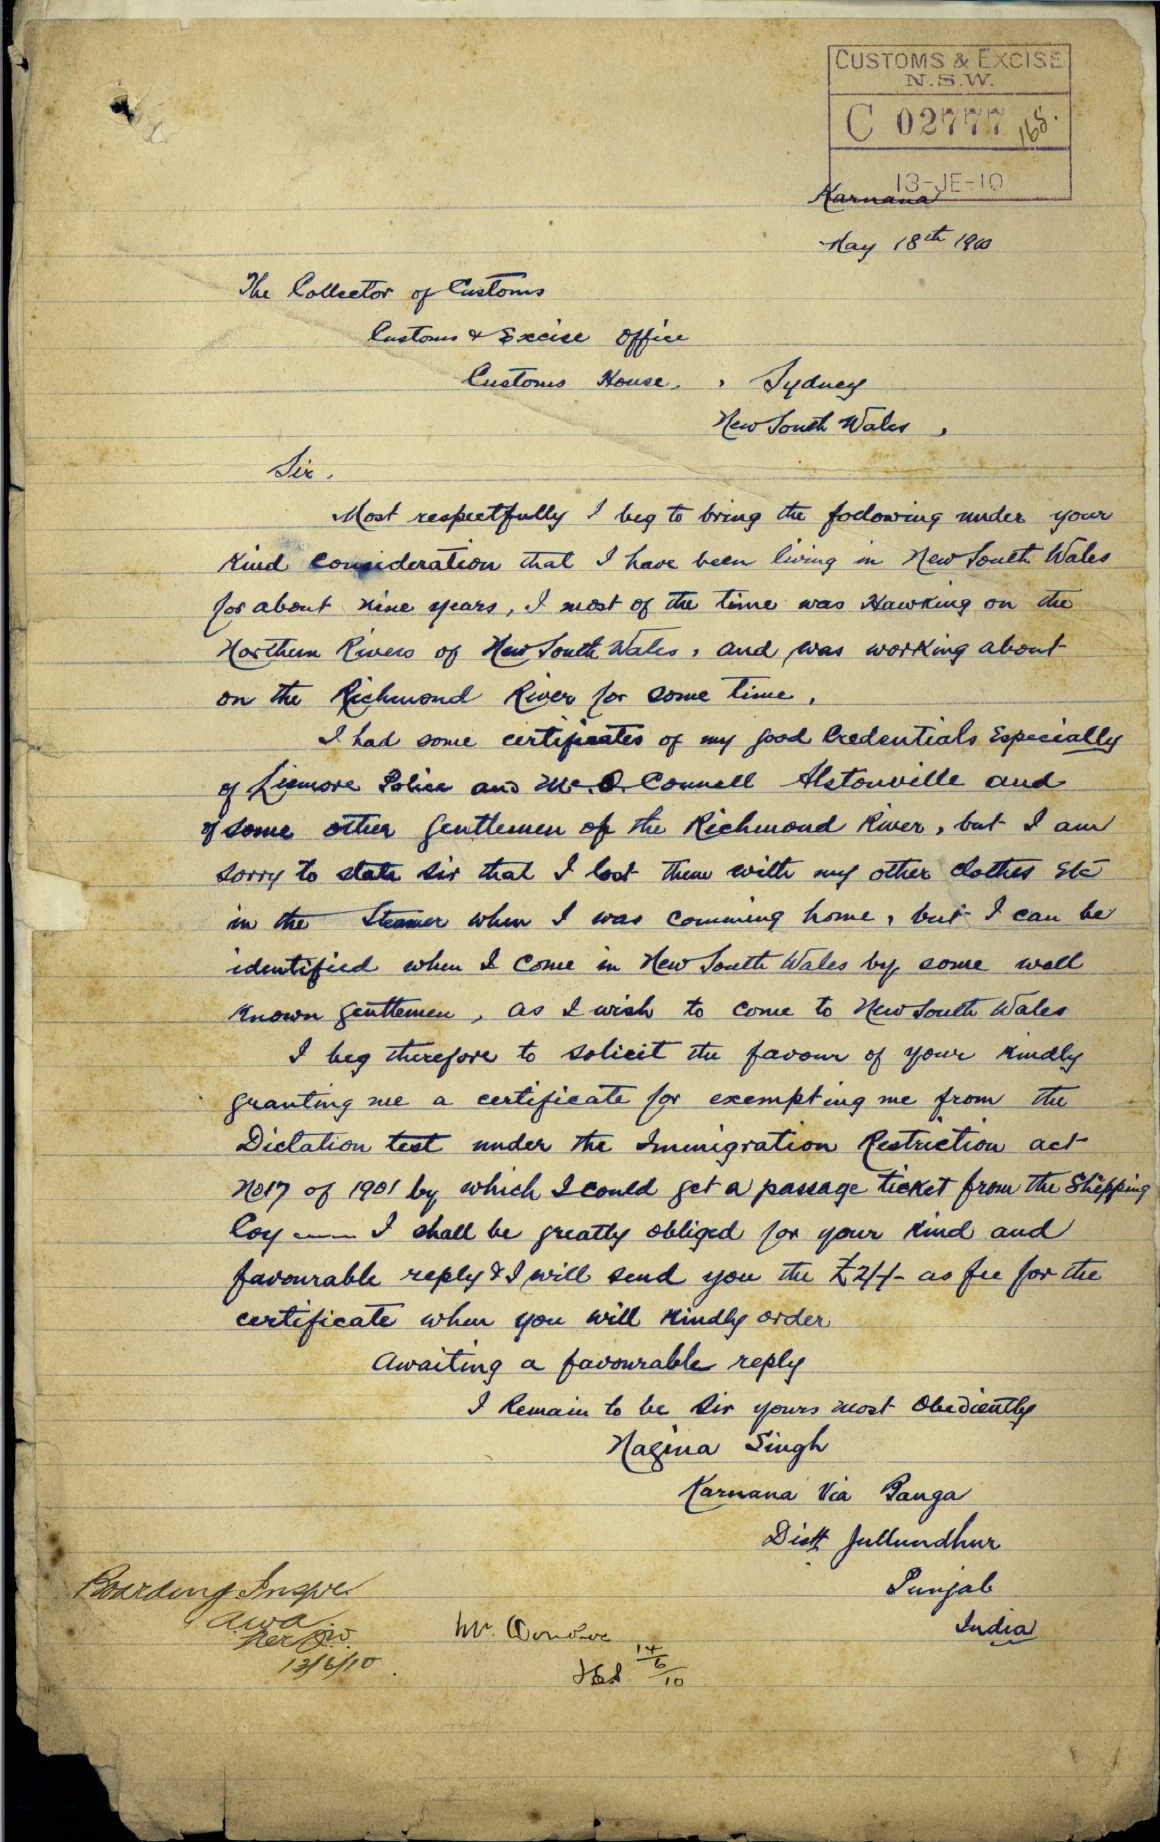 CUSTOMS & EXCISE
N.S.W.
C 02777 168.
13-JE-10
Karnana
May 18th 1910
The Collector of Customs
Customs & Excise Office
Customs House, , Sydney
New South Wales ,
Sir,
Most respectfully I beg to bring the following under your
kind consideration that I have been living in New South Wales
for about nine years, I most of the time was Hawking on the
Northern Rivers of New South Wales, and was working about
on the Richmond River for some time,
I had some certificates of my good Credentials Especially
of Lismore Police and Mr. O. Connell Alstonville and
of some other gentlemen of the Richmond River, but I am
sorry to state Sir that I lost them with my other clothes Etc
in the Steamer when I was comming home, but I can be
identified when I come in New South Wales by some well
known gentlemen, as I wish to come to New South Wales
I beg therefore to solicit the favour of your kindly
granting me a certificate for exempting me from the
Dictation test under the Immigration Restriction act
No17 of 1901 by which I could get a passage ticket from the Shipping
Coy —— I shall be greatly obliged for your kind and
favourable reply & I will send you the £2/-/- as fee for the
certificate when you will kindly order
Awaiting a favourable reply
I Remain to be Sir yours most Obediently
Nagina Singh
Karnana Via Banga
Distt Jullundhur
Punjab
India
Boarding Inspr.
13/6/10
Mr.
14/6/10